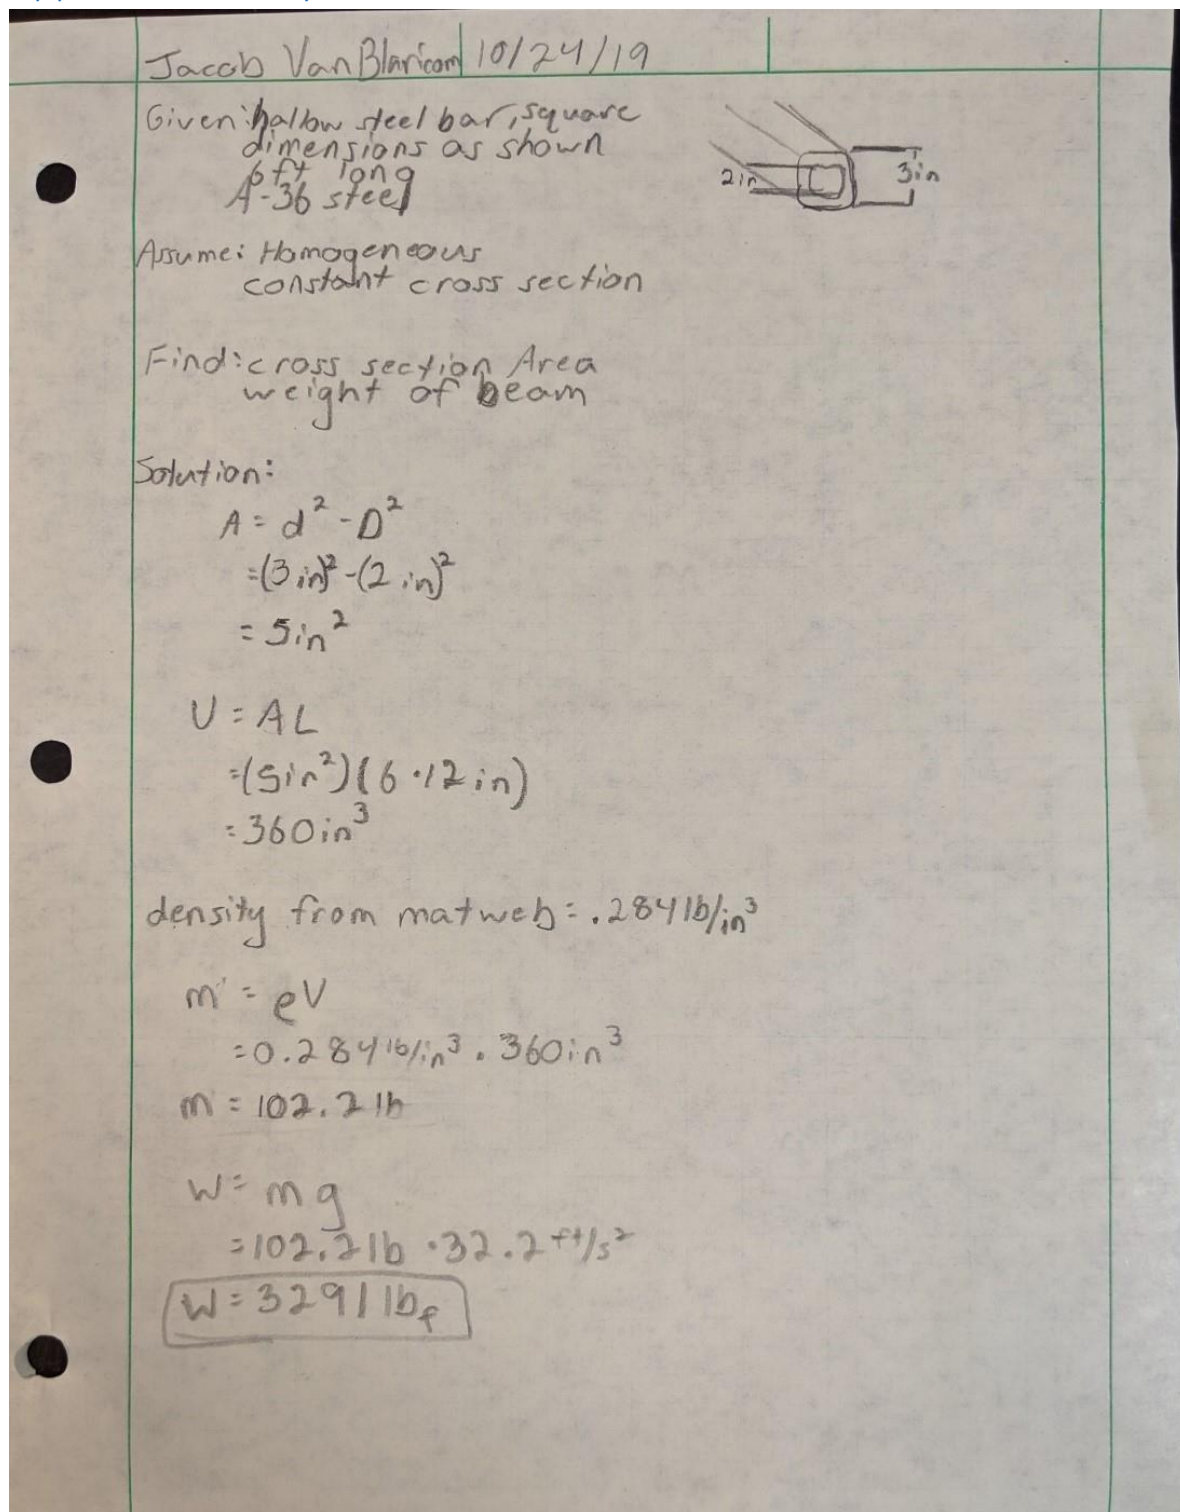 Jacob VanBlaricom 10/24/19
Given: hallow steel bar, square
dimensions as shown
6ft long
A-36 steel
2in
3in
Assume: Homogeneous
constant cross section
Find: cross section Area
weight of beam
Solution:
A = d² - D²
= (3 in)² - (2 in)²
= 5in²
V = AL
= (5in²)(6·12in)
= 360in³
density from matweb = .284 lb/in³
m = ρV
= 0.284 lb/in³ · 360in³
m = 102.2 lb
W = mg
= 102.2 lb · 32.2 ft/s²
W = 3291 lbf